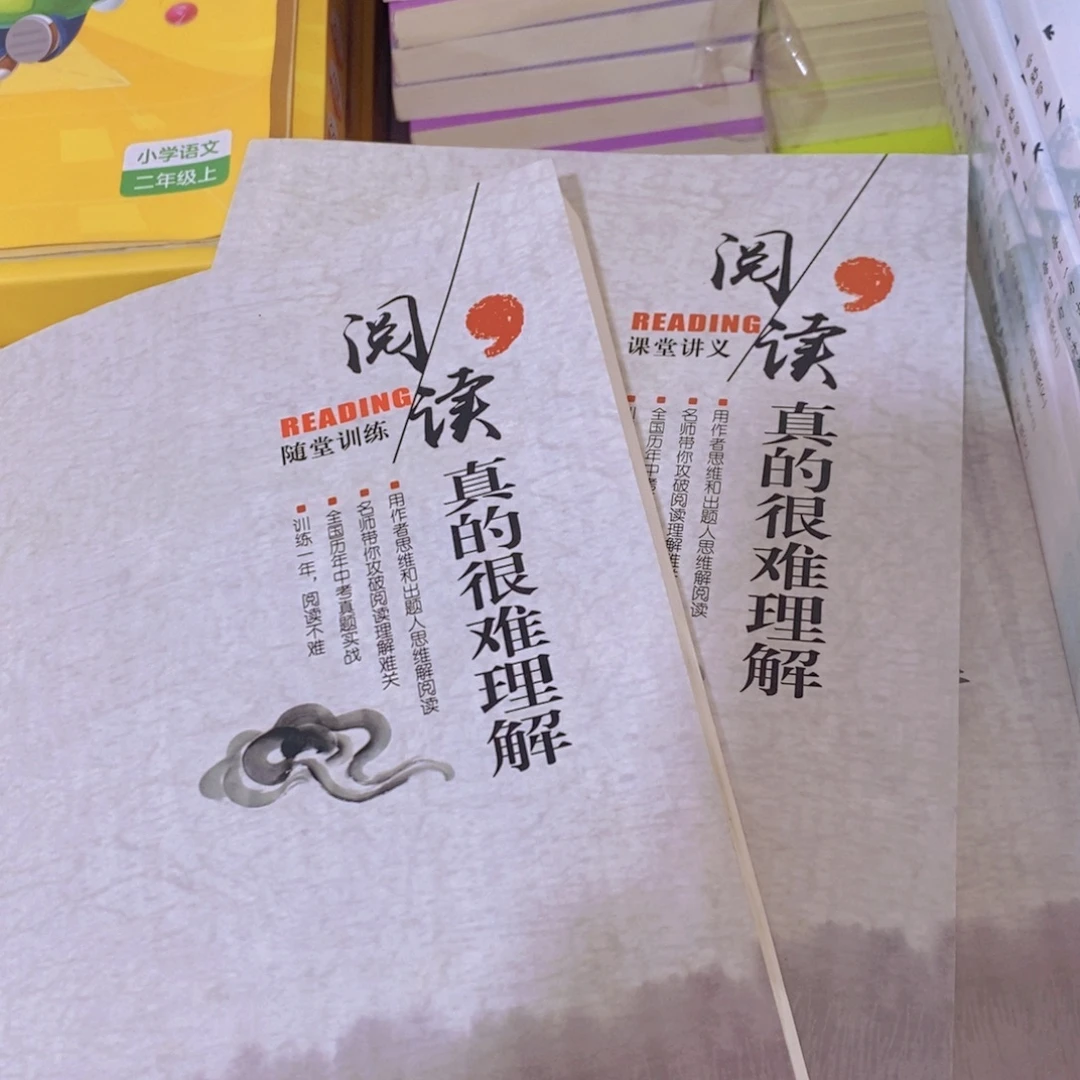 小学语文
二年级上
阅读
READING
随堂训练
真的很难理解
用作者思维和出题人思维解阅读
名师带你攻破阅读理解难关
全国历年中考真题实战
训练一年，阅读不难
阅读
READING
课堂讲义
真的很难理解
用作者思维和出题人思维解阅读
名师带你攻破阅读理解难
全国历年中考